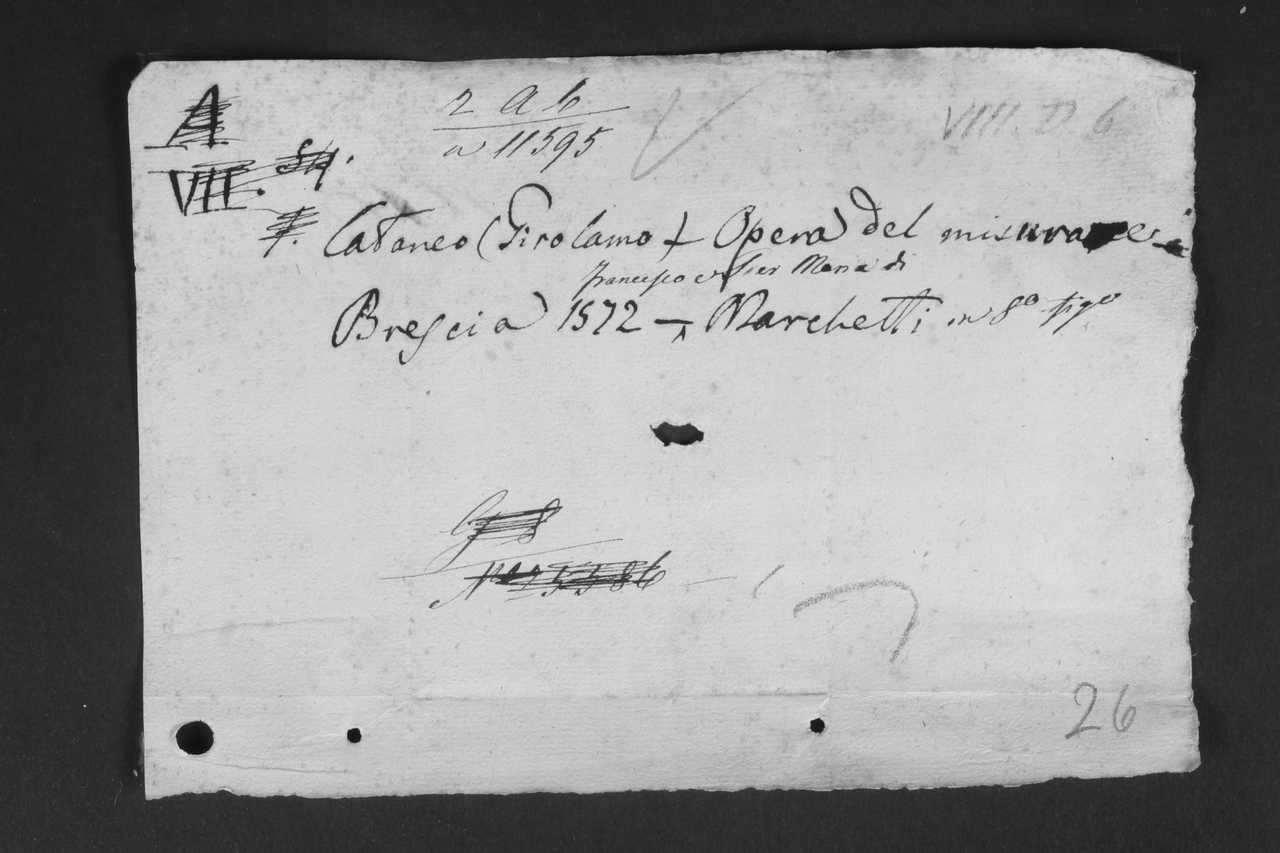 A
VII. 
2 A b
a 11595
VIII. D 6
Cataneo (Girolamo) Opera del misurare
Francesco e Pier Maria di
Brescia 1572 — Marchetti in 8º figº
G 8
26